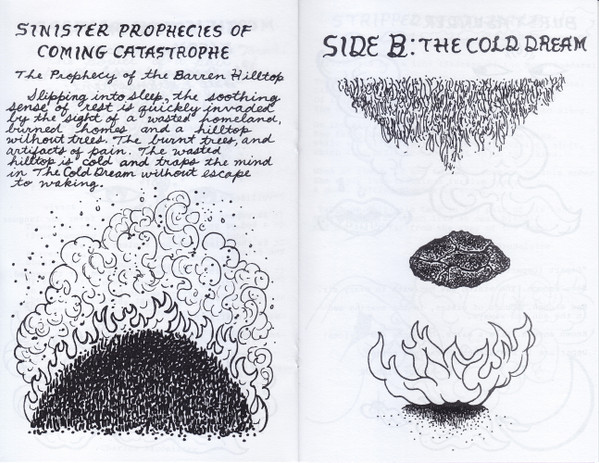 SINISTER PROPHECIES OF
COMING CATASTROPHE
The Prophecy of the Barren Hilltop
Slipping into sleep, the soothing
sense of rest is quickly invaded
by the sight of a wasted homeland,
burned homes and a hilltop
without trees. The burnt trees, and
artifacts of pain. The wasted
hilltop is cold and traps the mind
in The Cold Dream without escape
to waking.
SIDE B: THE COLD DREAM